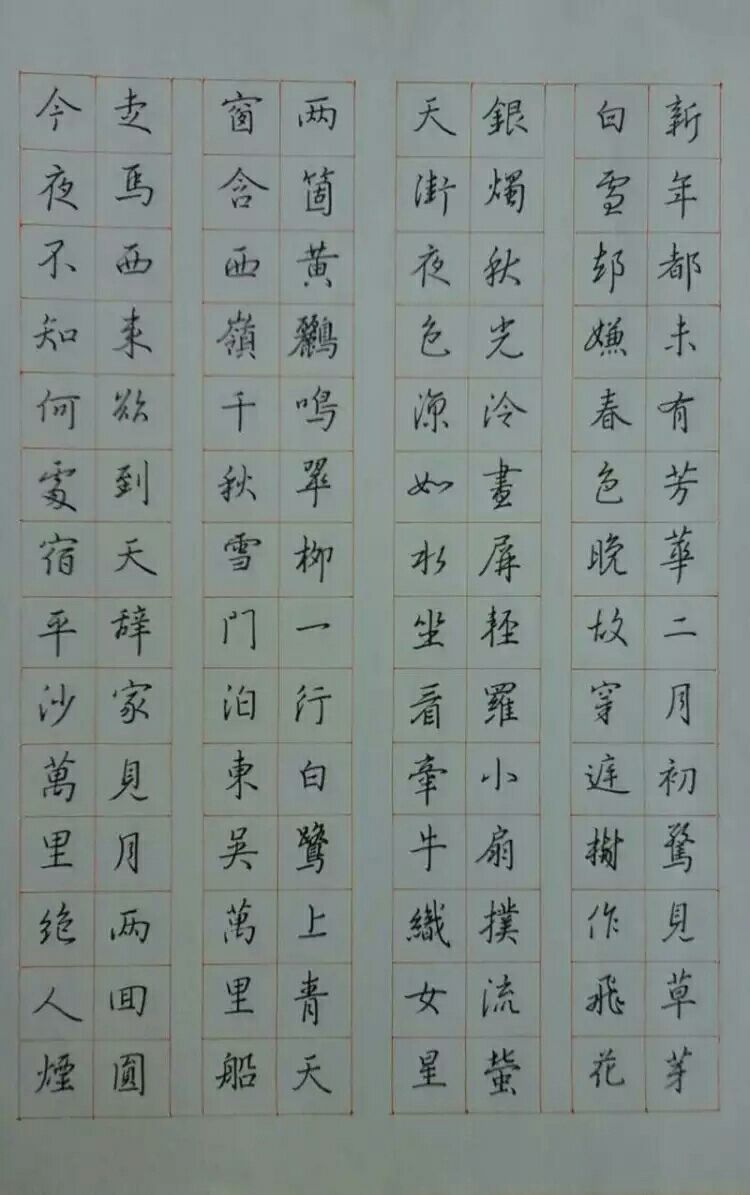 新年都未有芳華二月初驚見草芽
白雪却嫌春色晚故穿庭樹作飛花
銀燭秋光冷畫屏輕羅小扇撲流螢
天街夜色涼如水坐看牽牛織女星
两箇黃鸝鳴翠柳一行白鷺上青天
窗含西嶺千秋雪門泊東吳萬里船
走馬西来欲到天辞家見月两回圓
今夜不知何處宿平沙萬里絕人煙